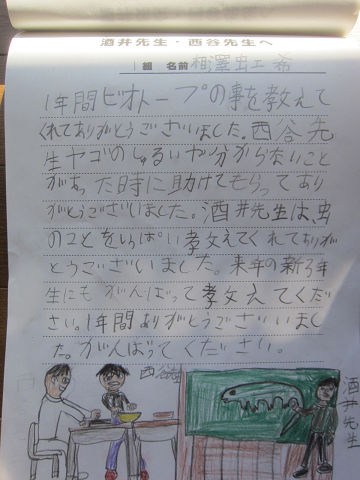 酒井先生・西谷先生へ
組 名前 相澤虫工希
1年間ビオトープの事を教えて
くれてありがとうございました。西谷先
生ヤゴのしゅるいや分からないこと
があった時に助けてもらってあり
がとうございました。酒井先生は、虫
のことをいっぱい教えてくれてありが
とうございました。来年の新3年
生にもがんばって教えてくだ
さい。1年間ありがとうございまし
た。がんばってください。
西谷先生
酒井先生